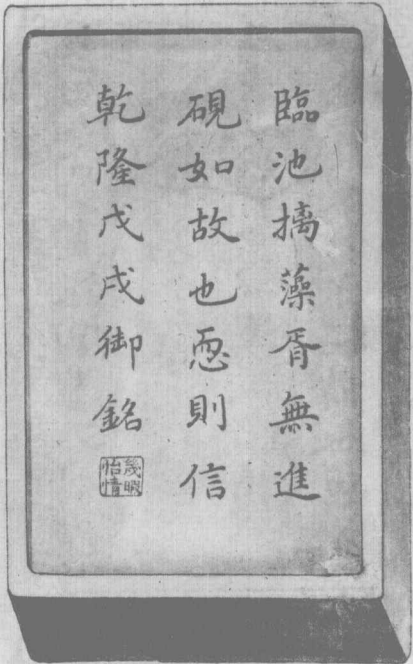 臨池摛藻胥無進
硯如故也恧則信
乾隆戊戌御銘
幾暇怡情